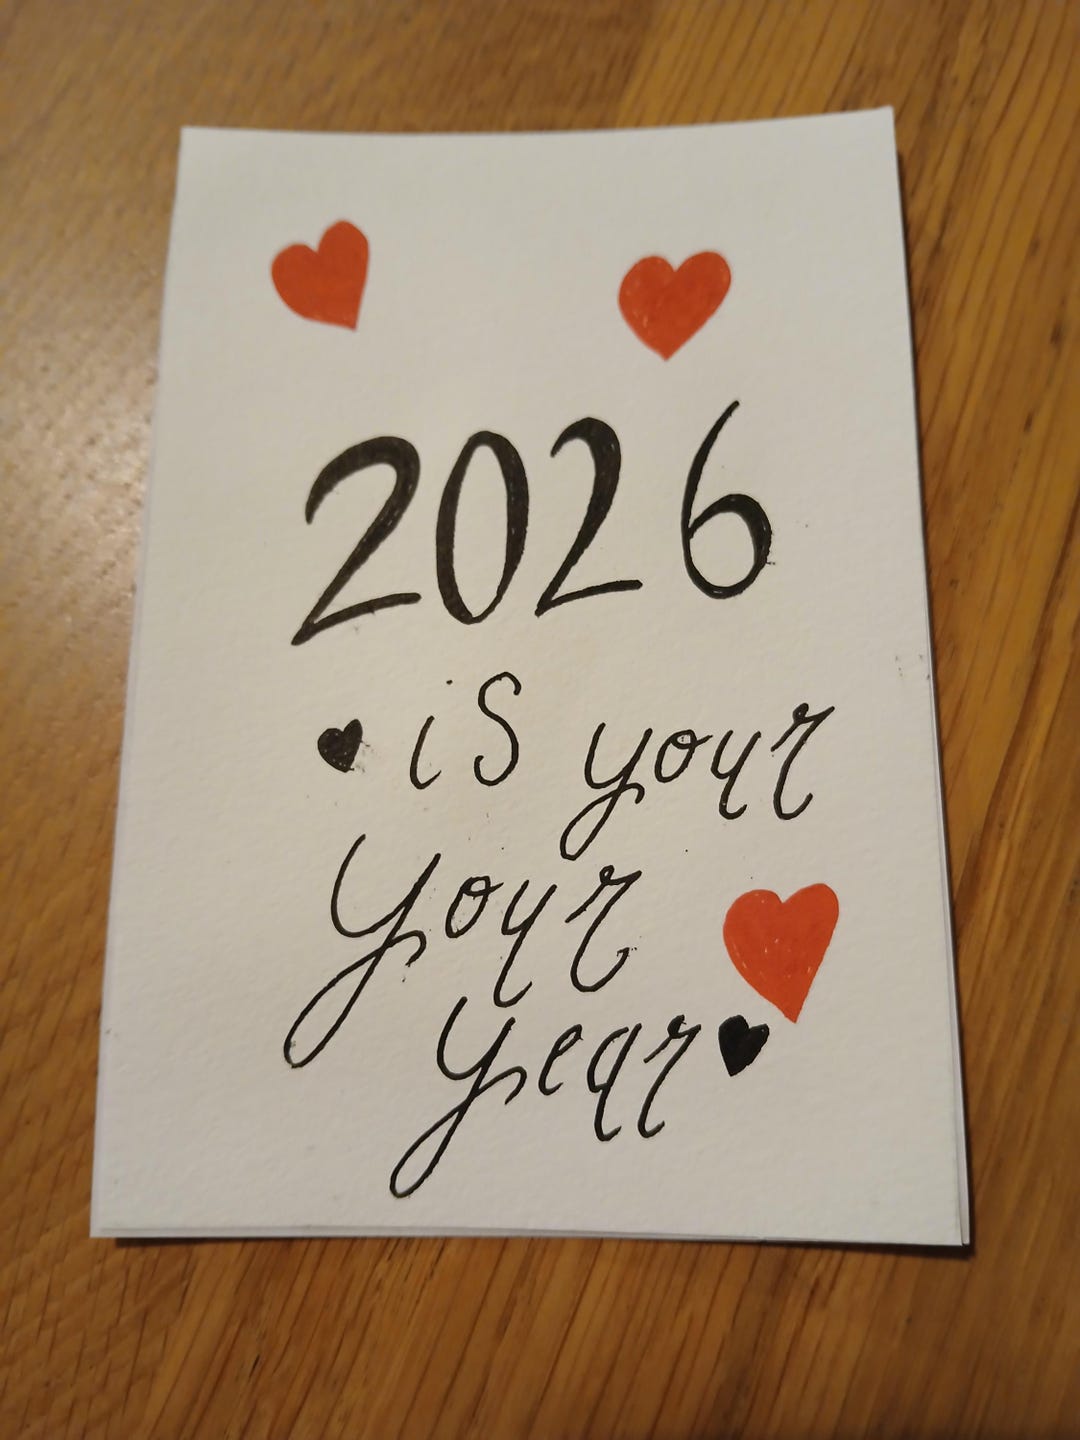 2026
is your
your
year